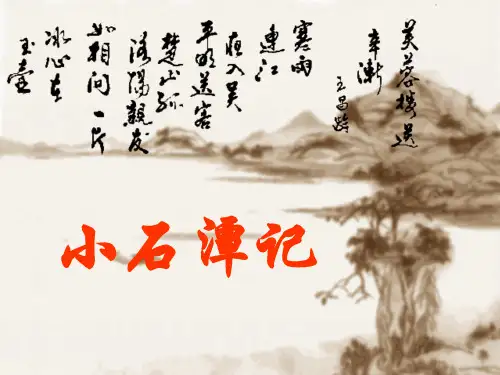 芙蓉樓送
辛漸
王昌齡
寒雨
連江
夜入吴
平明送客
楚山孤
洛陽親友
如相問一片
冰心在
玉壺
小石潭记